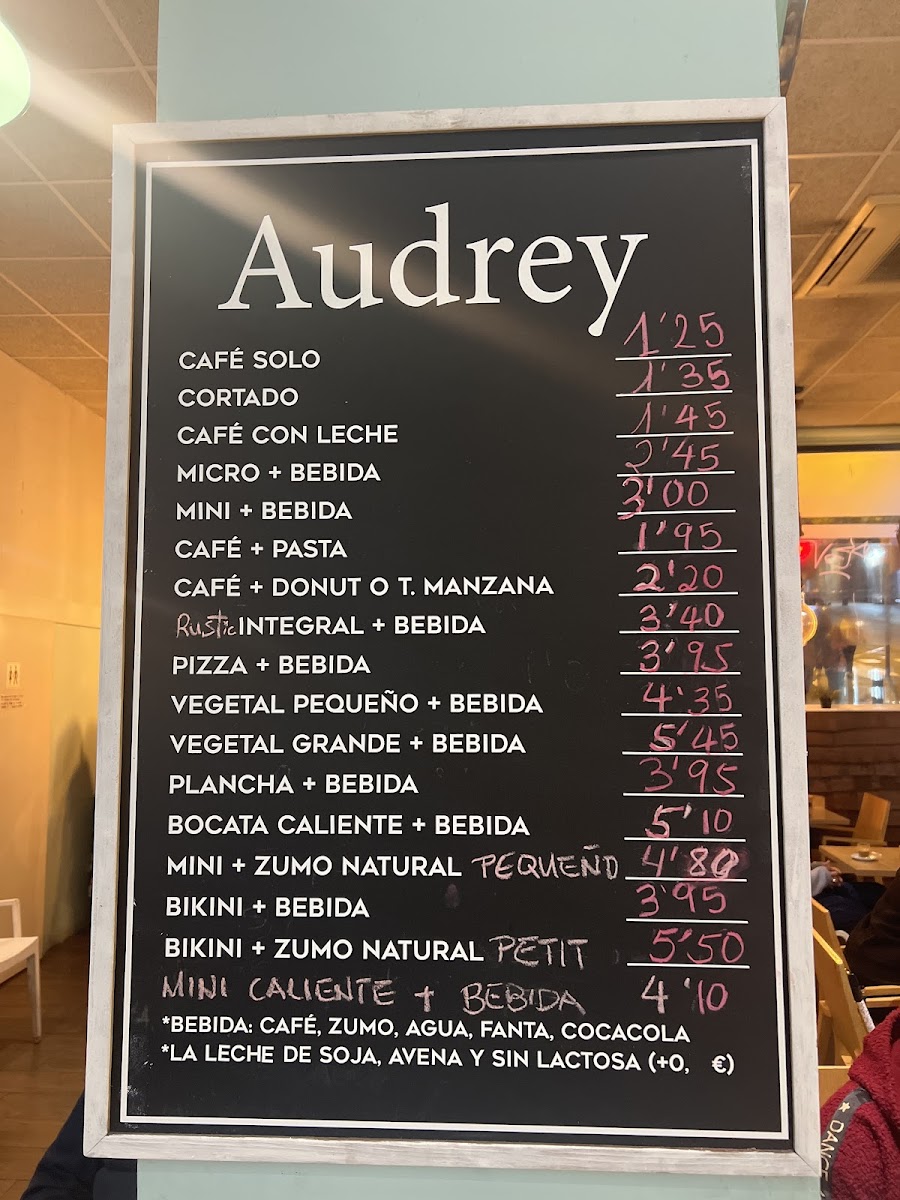 Audrey
CAFÉ SOLO 1'25
CORTADO 1'35
CAFÉ CON LECHE 1'45
MICRO + BEBIDA 2'45
MINI + BEBIDA 3'00
CAFÉ + PASTA 1'95
CAFÉ + DONUT O T. MANZANA 2'20
Rustic INTEGRAL + BEBIDA 3'40
PIZZA + BEBIDA 3'95
VEGETAL PEQUEÑO + BEBIDA 4'35
VEGETAL GRANDE + BEBIDA 5'45
PLANCHA + BEBIDA 3'95
BOCATA CALIENTE + BEBIDA 5'10
MINI + ZUMO NATURAL PEQUEÑO 4'80
BIKINI + BEBIDA 3'95
BIKINI + ZUMO NATURAL PETIT 5'50
MINI CALIENTE + BEBIDA 4'10
*BEBIDA: CAFÉ, ZUMO, AGUA, FANTA, COCACOLA
*LA LECHE DE SOJA, AVENA Y SIN LACTOSA (+0, €)
DANCE